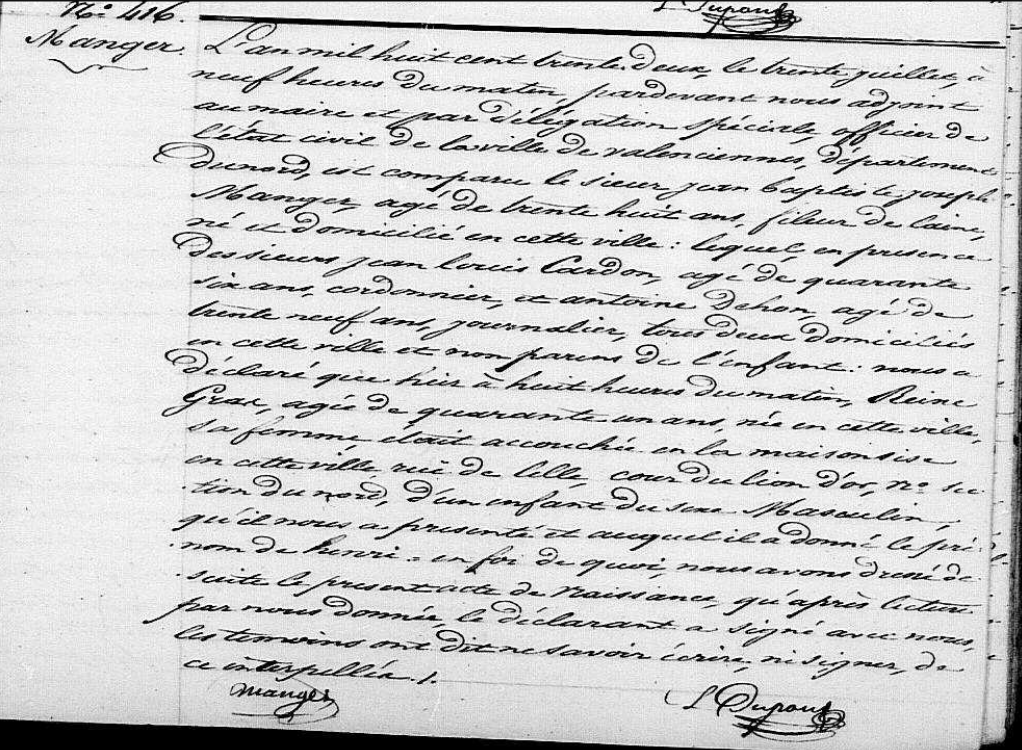 L Dupont
N.o 416.
Manger.
L'an mil huit cent trente deux, le trente juillet, à
neuf heures du matin, pardevant nous adjoint
au maire et par délégation spéciale, officier de
l'état civil de la ville de valenciennes, département
du nord, est comparu le sieur jean baptiste joseph
Manger, agé de trente huit ans, fileur de laine,
né et domicilié en cette ville : lequel, en presence
des sieurs jean louis Cardon, agé de quarante
six ans, cordonnier, et antoine dehon, agé de
trente neuf ans, journalier, tous deux domiciliés
en cette ville et non parens de l'enfant : nous a
déclaré que hier à huit heures du matin, Reine
Grae, agée de quarante un ans, née en cette ville,
sa femme, était accouchée en la maison sise
en cette ville rue de lille, cour du lion d'or, n.o sec-
tion du nord, d'un enfant du sexe Masculin,
qu'il nous a presenté et auquel il a donné le pré-
nom de henri. en foi de quoi, nous avons dressé de
suite le present acte de Naissance, qu'après lecture
par nous donnée, le déclarant a signé avec nous,
les temoins ont dit ne savoir écrire, ni signer, de
ce interpellés ./.
manger
L Dupont